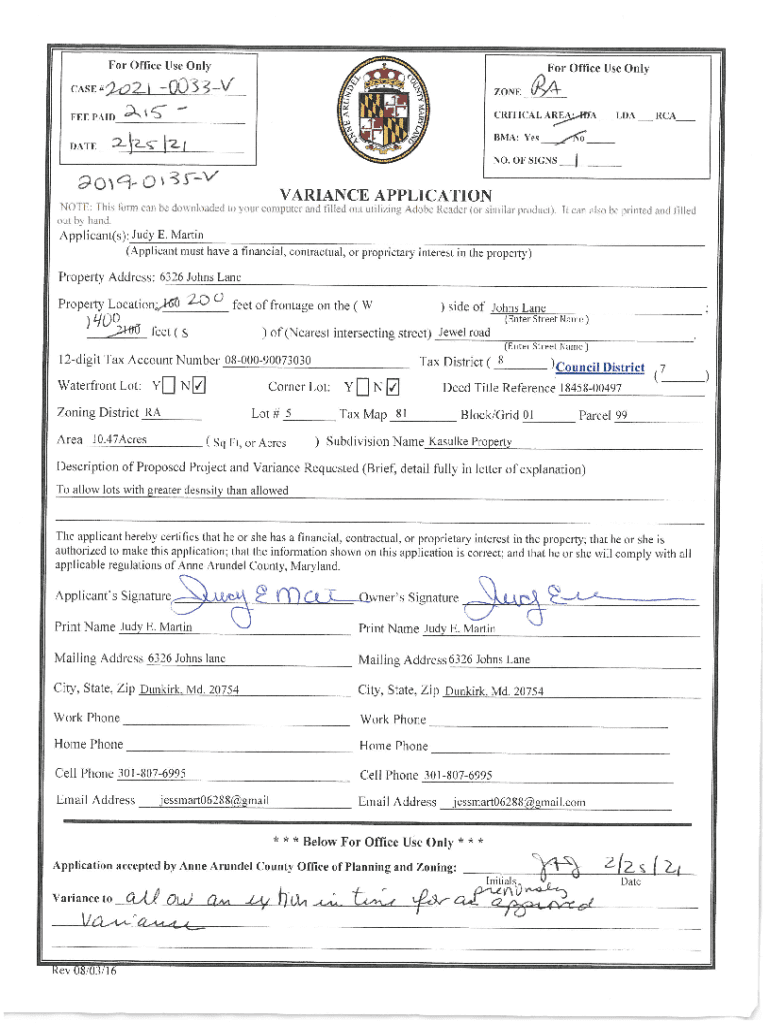 For Office Use Only
CASE # 2021-0033-V
FEE PAID 215 -
DATE 2/25/21
ANNE ARUNDEL COUNTY MARYLAND
For Office Use Only
ZONE RA
CRITICAL AREA: IDA LDA RCA
BMA: Yes No
NO. OF SIGNS 1
2019-0135-V
VARIANCE APPLICATION
NOTE: This form can be downloaded to your computer and filled out utilizing Adobe Reader (or similar product). It can also be printed and filled
out by hand.
Applicant(s): Judy E. Martin
(Applicant must have a financial, contractual, or proprietary interest in the property)
Property Address: 6326 Johns Lane
Property Location: 160 200 feet of frontage on the ( W ) side of Johns Lane ;
(Enter Street Name)
1400 2100 feet ( S ) of (Nearest intersecting street) Jewel road .
(Enter Street Name)
12-digit Tax Account Number 08-000-90073030 Tax District ( 8 ) Council District ( 7 )
Waterfront Lot: Y N ✓ Corner Lot: Y N ✓ Deed Title Reference 18458-00497
Zoning District RA Lot # 5 Tax Map 81 Block/Grid 01 Parcel 99
Area 10.47Acres ( Sq Ft, or Acres ) Subdivision Name Kasulke Property
Description of Proposed Project and Variance Requested (Brief, detail fully in letter of explanation)
To allow lots with greater desnsity than allowed
The applicant hereby certifies that he or she has a financial, contractual, or proprietary interest in the property; that he or she is
authorized to make this application; that the information shown on this application is correct; and that he or she will comply with all
applicable regulations of Anne Arundel County, Maryland.
Applicant's Signature Judy E Mat Owner's Signature Judy E
Print Name Judy E. Martin Print Name Judy E. Martin
Mailing Address 6326 Johns lane Mailing Address 6326 Johns Lane
City, State, Zip Dunkirk, Md. 20754 City, State, Zip Dunkirk, Md. 20754
Work Phone Work Phone
Home Phone Home Phone
Cell Phone 301-807-6995 Cell Phone 301-807-6995
Email Address jessmart06288@gmail Email Address jessmart06288@gmail.com
* * * Below For Office Use Only * * *
Application accepted by Anne Arundel County Office of Planning and Zoning: 2/25/21
Initials Date
previously
Variance to allow an in time for an approved
Variance
Rev 08/03/16